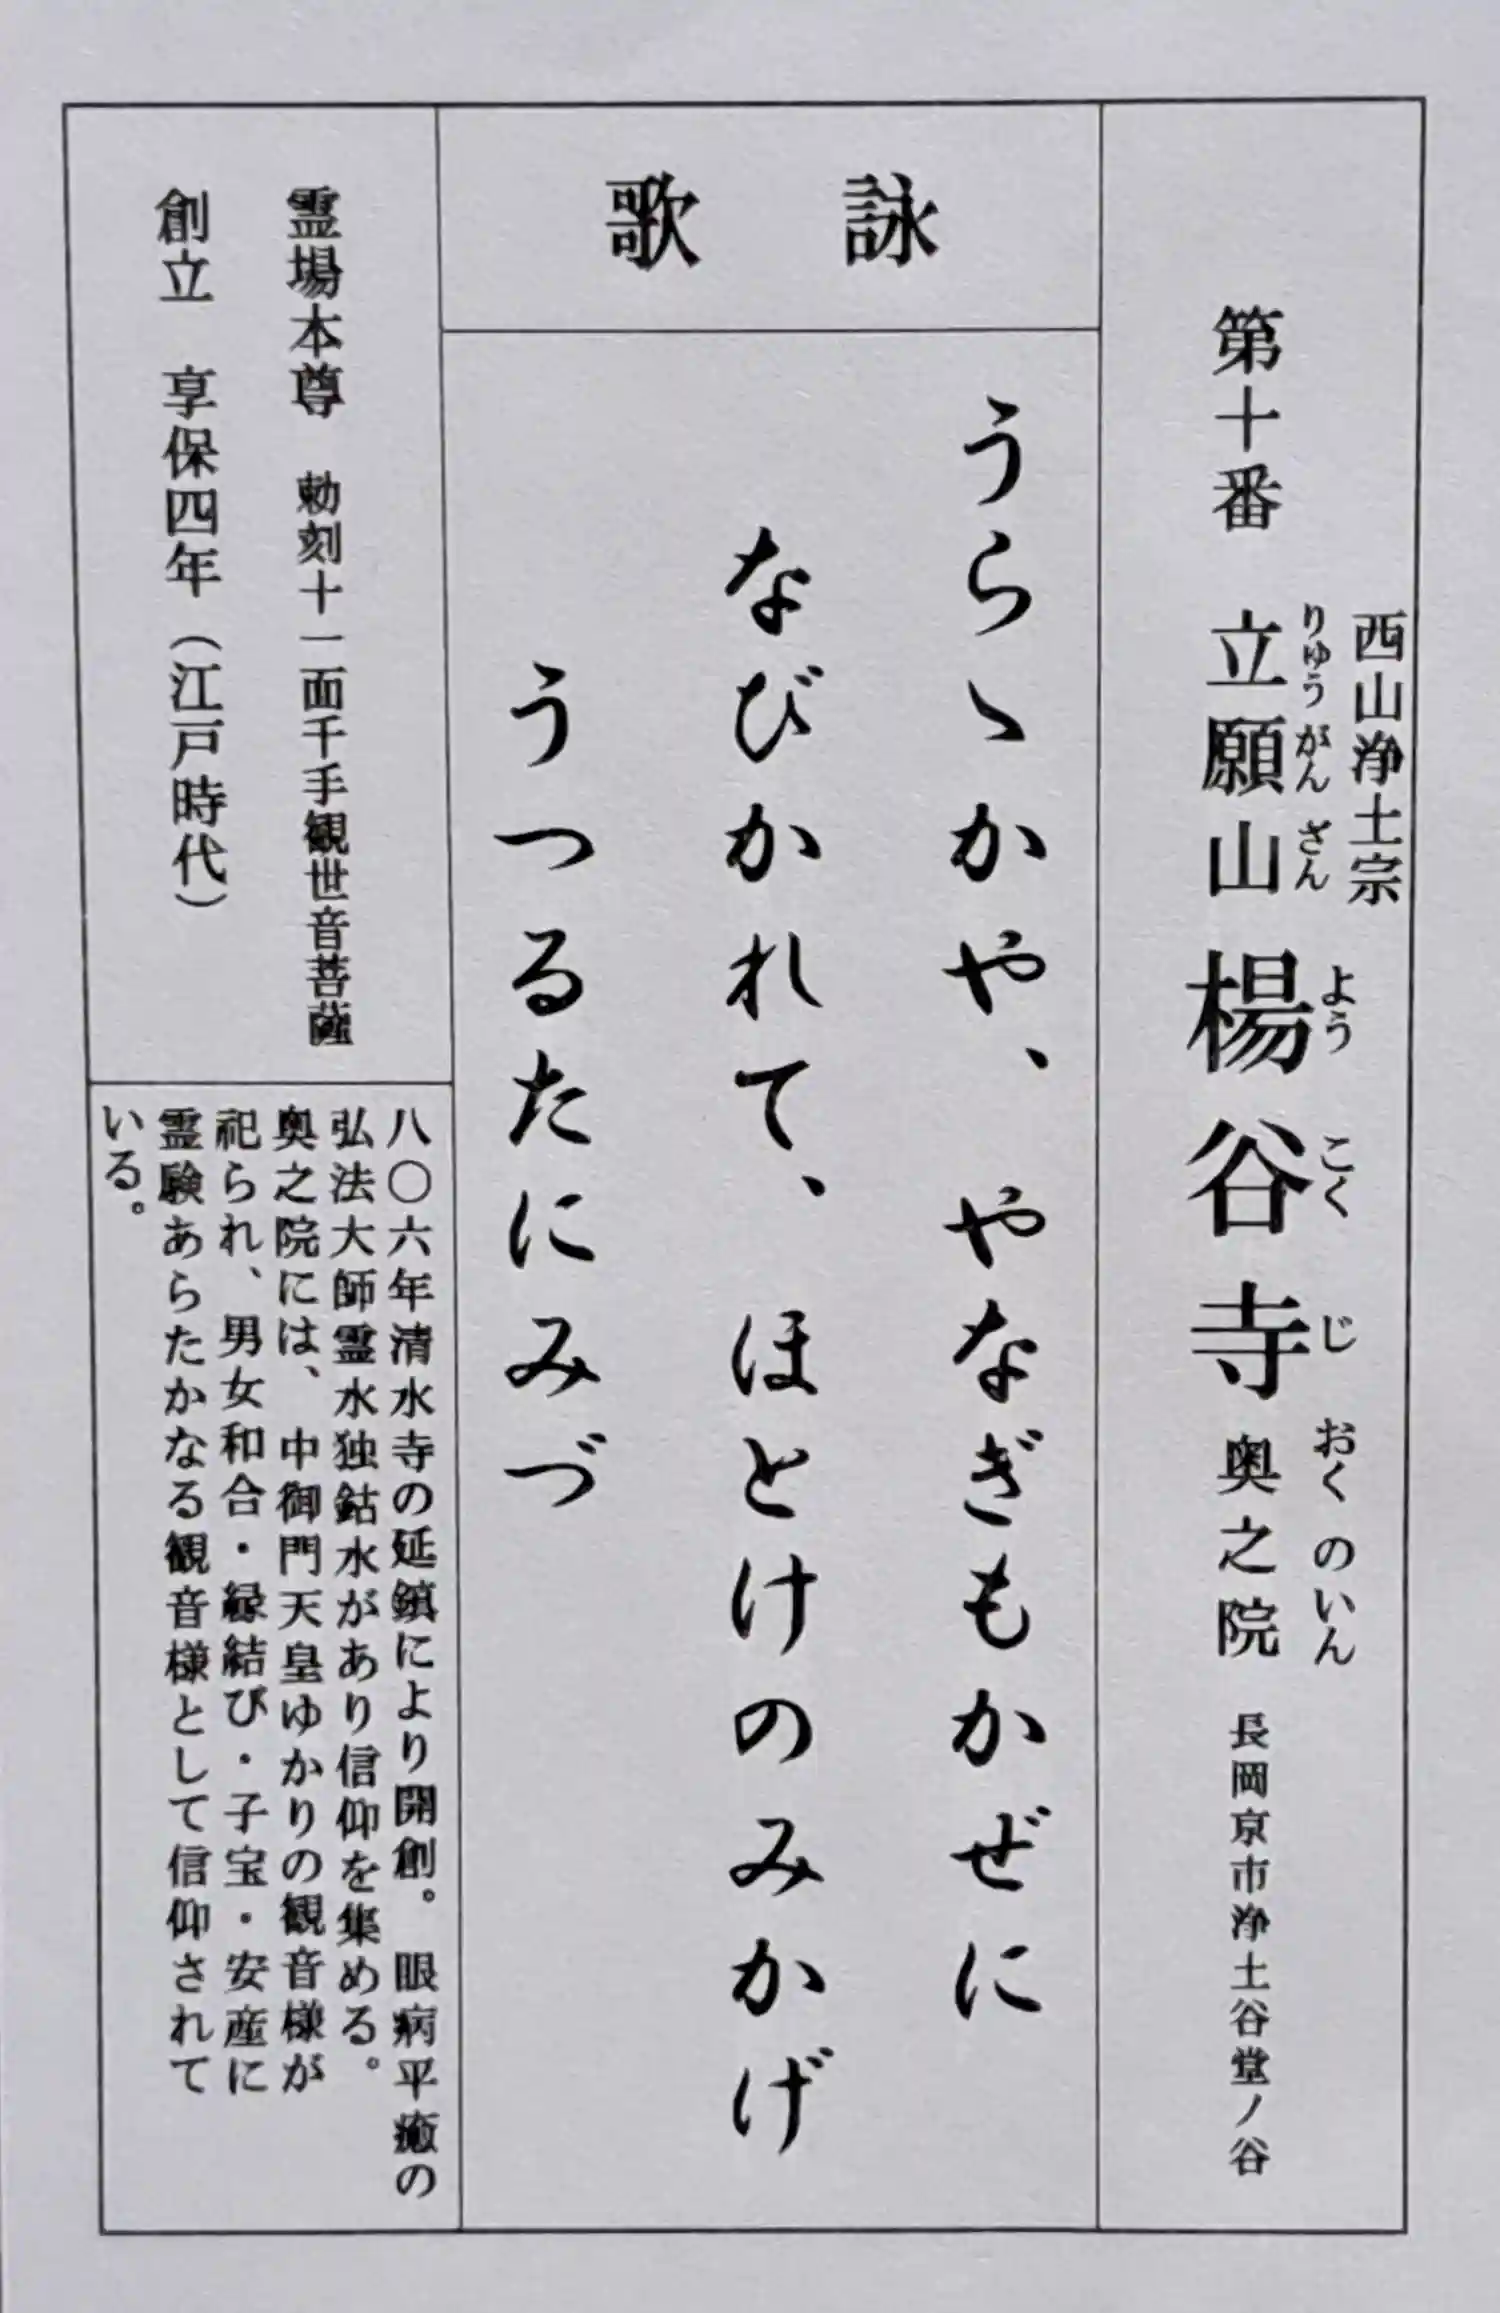 西山浄土宗
第十番 立願山楊谷寺奥之院 長岡京市浄土谷堂ノ谷
りゅうがんざん ようこくじ おくのいん
詠歌
うらゝかや、やなぎもかぜに
なびかれて、ほとけのみかげ
うつるたにみづ
霊場本尊 勅刻十一面千手観世音菩薩
創立 享保四年（江戸時代）
八〇六年清水寺の延鎮により開創。眼病平癒の
弘法大師霊水独鈷水があり信仰を集める。
奥之院には、中御門天皇ゆかりの観音様が
祀られ、男女和合・縁結び・子宝・安産に
霊験あらたかなる観音様として信仰されて
いる。